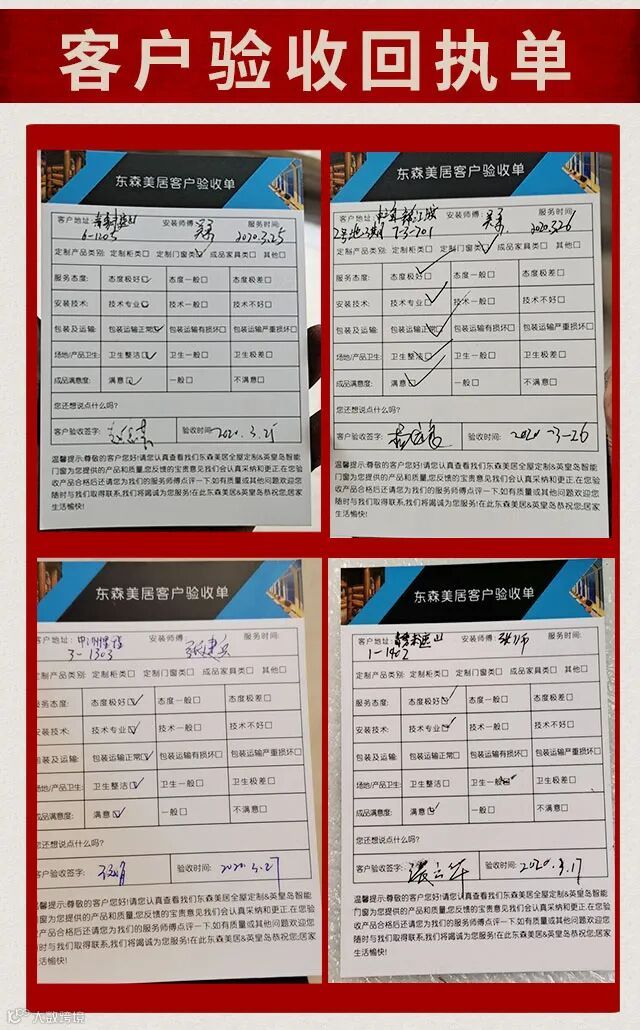 客户验收回执单
东森美居客户验收单
客户地址: 安装师傅: 服务时间:
6-1205 2020.3.25
定制产品类别: 定制柜类□ 定制门窗类□ 成品家具类□ 其他□
服务态度: 态度极好□ 态度一般□ 态度极差□
安装技术: 技术专业□ 技术一般□ 技术不好□
包装及运输: 包装运输正常□ 包装运输有损坏□ 包装运输严重损坏□
场地/产品卫生: 卫生整洁□ 卫生一般□ 卫生极差□
成品满意度: 满意□ 一般□ 不满意□
您还想说点什么吗?
客户验收签字: 验收时间: 2020.3.25
温馨提示:尊敬的客户您好!请您认真查看我们东森美居全屋定制&英皇岛智能
门窗为您提供的产品和质量,您反馈的宝贵意见我们会认真采纳和更正.在您验
收产品合格后还请您为我们的服务师傅点评一下.如有质量或其他问题欢迎您
随时与我们取得联系,我们将竭诚为您服务!在此东森美居&英皇岛恭祝您;居家
生活愉快!
东森美居客户验收单
客户地址: 安装师傅: 服务时间:
2-3-201 2020.3.26
定制产品类别: 定制柜类□ 定制门窗类□ 成品家具类□ 其他□
服务态度: 态度极好□ 态度一般□ 态度极差□
安装技术: 技术专业□ 技术一般□ 技术不好□
包装及运输: 包装运输正常□ 包装运输有损坏□ 包装运输严重损坏□
场地/产品卫生: 卫生整洁□ 卫生一般□ 卫生极差□
成品满意度: 满意□ 一般□ 不满意□
您还想说点什么吗?
客户验收签字: 验收时间: 2020-3-26
温馨提示:尊敬的客户您好!请您认真查看我们东森美居全屋定制&英皇岛智能
门窗为您提供的产品和质量,您反馈的宝贵意见我们会认真采纳和更正.在您验
收产品合格后还请您为我们的服务师傅点评一下.如有质量或其他问题欢迎您
随时与我们取得联系,我们将竭诚为您服务!在此东森美居&英皇岛恭祝您;居家
生活愉快!
东森美居客户验收单
客户地址: 安装师傅: 服务时间:
3-1303
定制产品类别: 定制柜类□ 定制门窗类□ 成品家具类□ 其他□
服务态度: 态度极好□ 态度一般□ 态度极差□
安装技术: 技术专业□ 技术一般□ 技术不好□
包装及运输: 包装运输正常□ 包装运输有损坏□ 包装运输严重损坏□
场地/产品卫生: 卫生整洁□ 卫生一般□ 卫生极差□
成品满意度: 满意□ 一般□ 不满意□
您还想说点什么吗?
客户验收签字: 验收时间: 2020.3.27
温馨提示:尊敬的客户您好!请您认真查看我们东森美居全屋定制&英皇岛智能
门窗为您提供的产品和质量,您反馈的宝贵意见我们会认真采纳和更正.在您验
收产品合格后还请您为我们的服务师傅点评一下.如有质量或其他问题欢迎您
随时与我们取得联系,我们将竭诚为您服务!在此东森美居&英皇岛恭祝您;居家
生活愉快!
东森美居客户验收单
客户地址: 安装师傅: 张师 服务时间:
1-1402
定制产品类别: 定制柜类□ 定制门窗类□ 成品家具类□ 其他□
服务态度: 态度极好□ 态度一般□ 态度极差□
安装技术: 技术专业□ 技术一般□ 技术不好□
包装及运输: 包装运输正常□ 包装运输有损坏□ 包装运输严重损坏□
场地/产品卫生: 卫生整洁□ 卫生一般□ 卫生极差□
成品满意度: 满意□ 一般□ 不满意□
您还想说点什么吗?
客户验收签字: 验收时间: 2020.3.17
温馨提示:尊敬的客户您好!请您认真查看我们东森美居全屋定制&英皇岛智能
门窗为您提供的产品和质量,您反馈的宝贵意见我们会认真采纳和更正.在您验
收产品合格后还请您为我们的服务师傅点评一下.如有质量或其他问题欢迎您
随时与我们取得联系,我们将竭诚为您服务!在此东森美居&英皇岛恭祝您;居家
生活愉快!
大数跨境